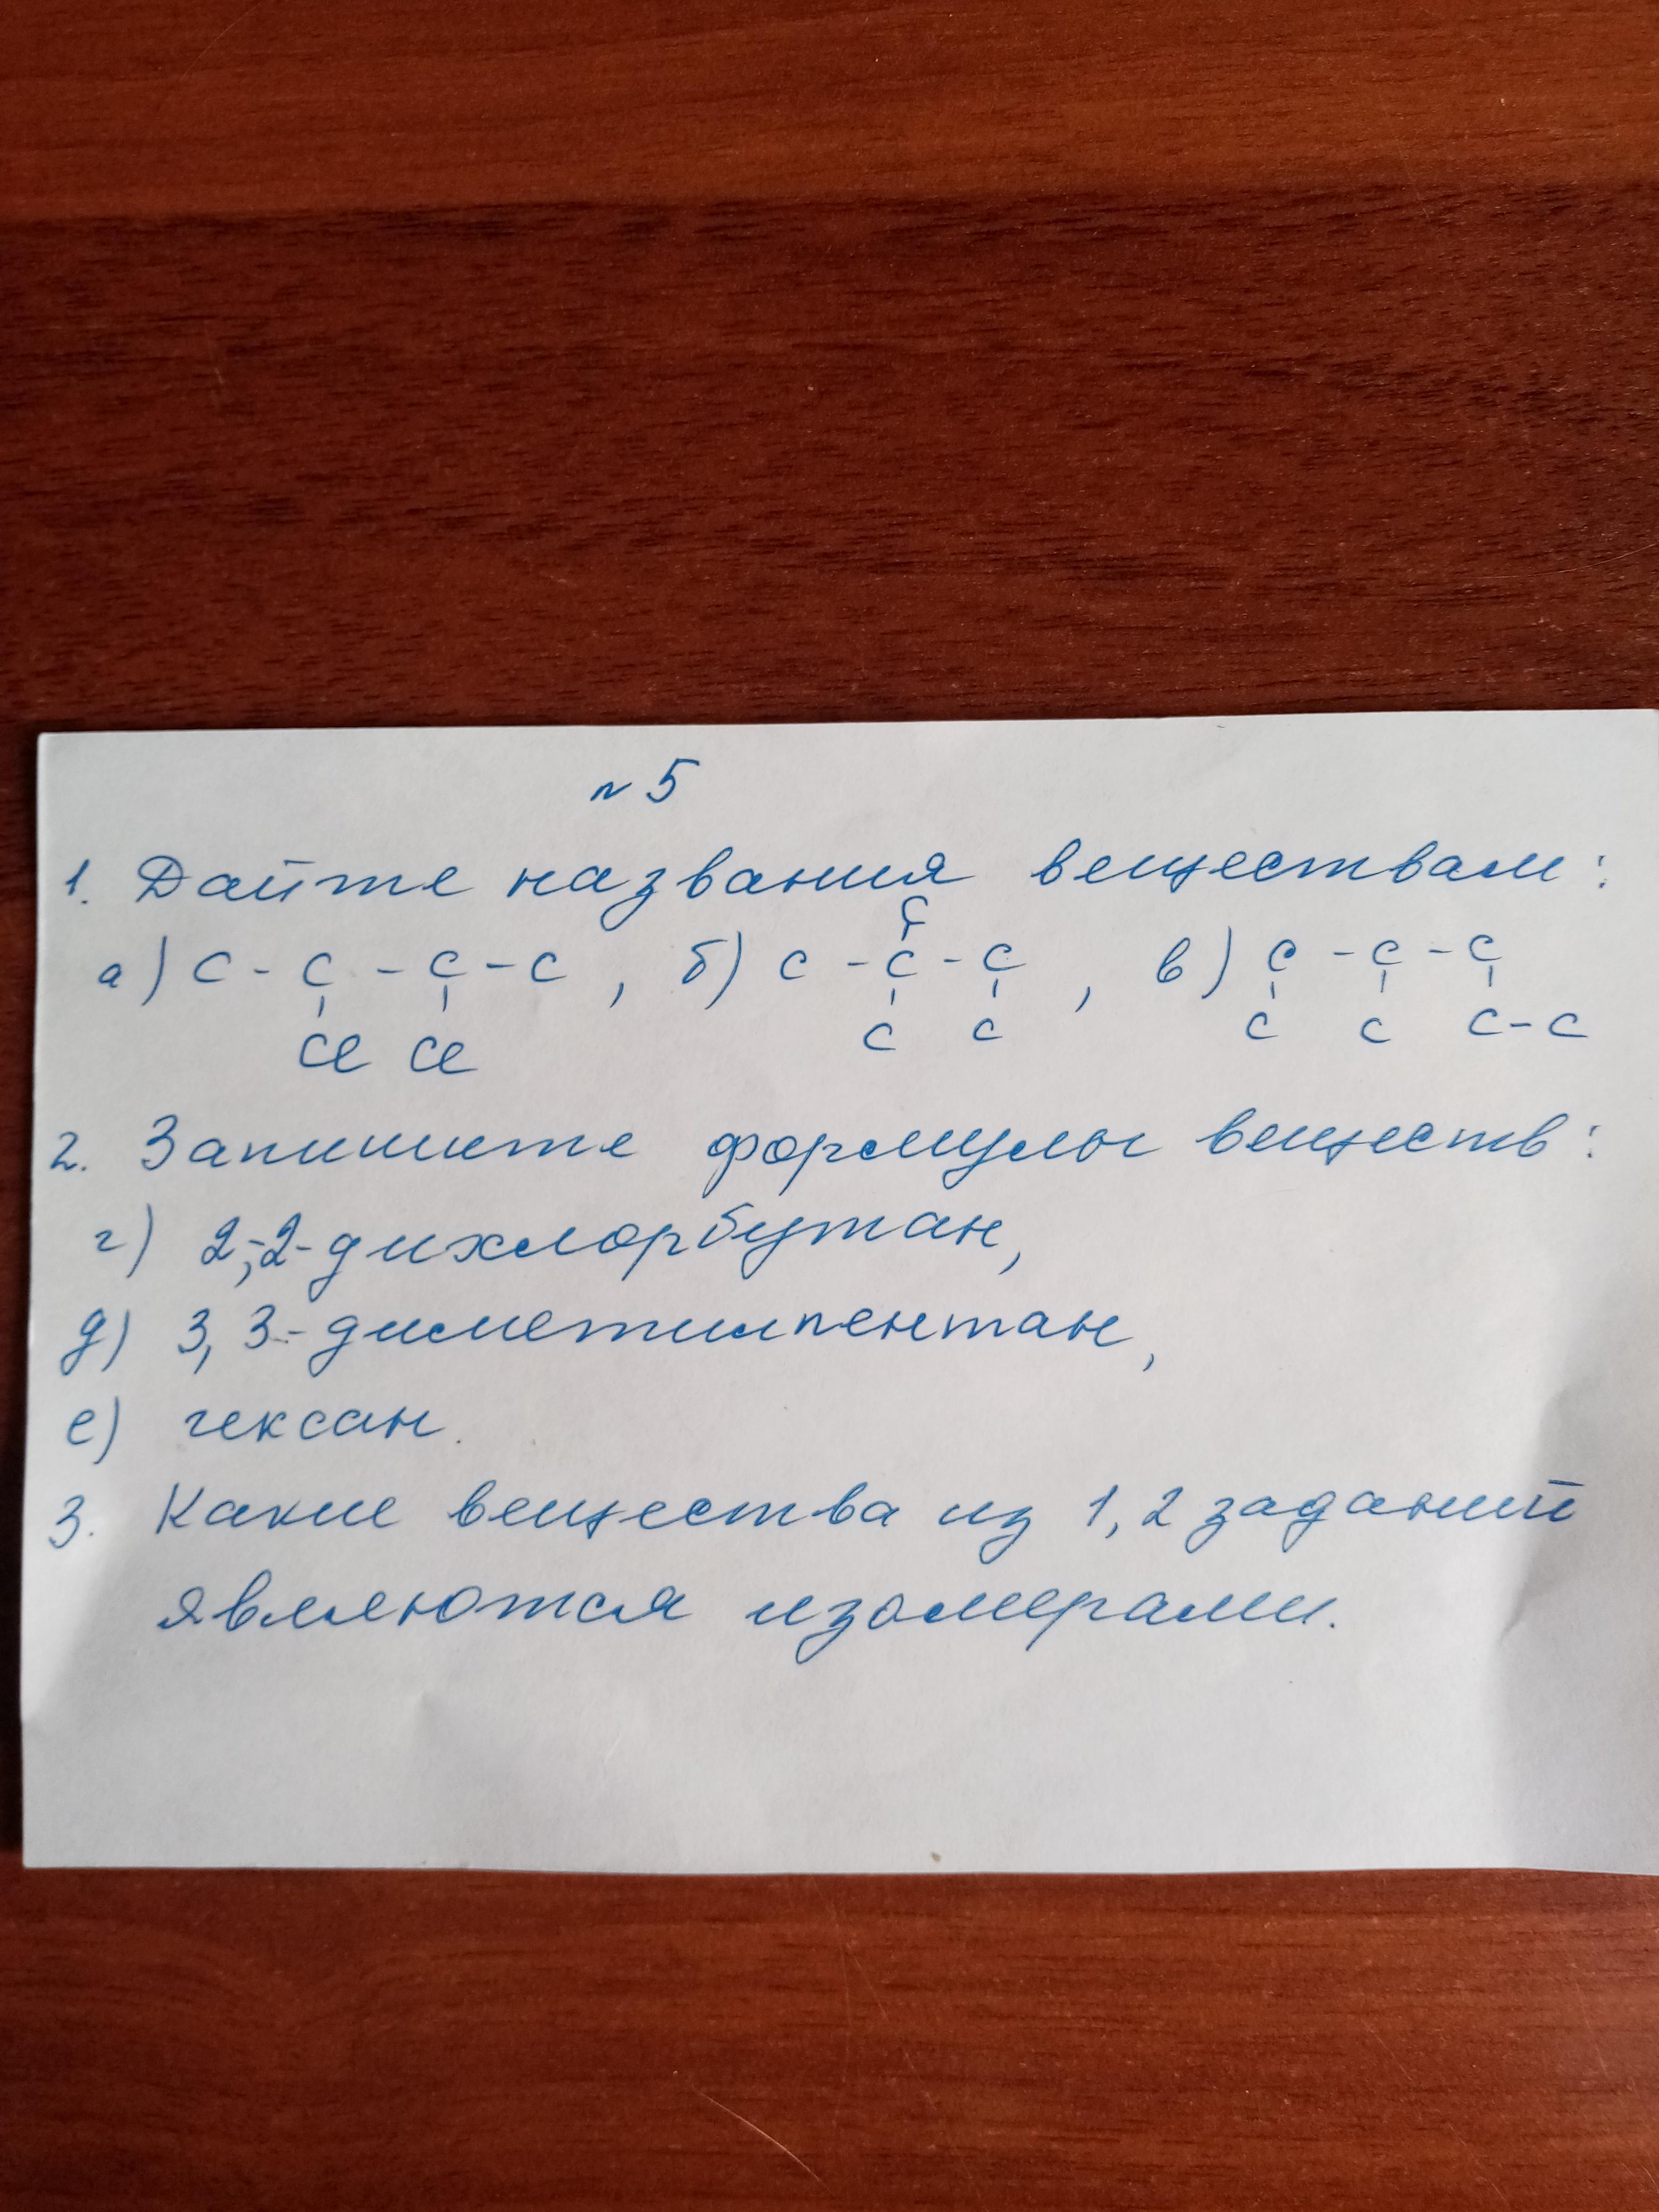 №5
1. Дайте названия веществам:
C
а) C - C - C - C, б) C - C - C, в) C - C - C
Cl Cl C C C C C-C
2. Запишите формулы веществ:
г) 2,2-дихлорбутан,
д) 3,3-диметилпентан,
е) гексан.
3. Какие вещества из 1, 2 заданий
являются изомерами.